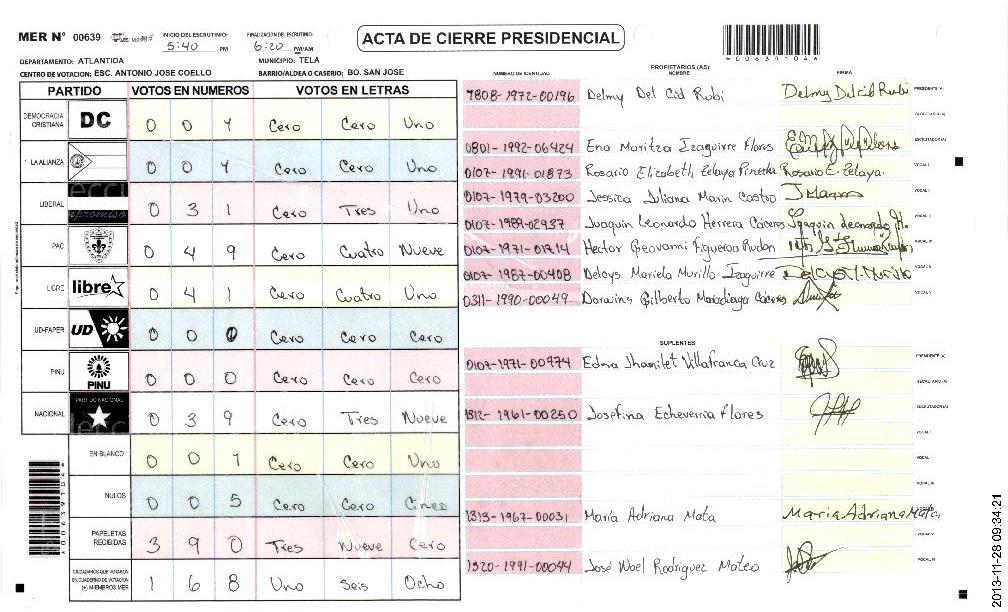 MER N° 00639
INICIO DEL ESCRUTINIO: 5:40 PM
FINALIZACION DEL ESCRUTINIO: 6:20 PM/AM
ACTA DE CIERRE PRESIDENCIAL
*00639104*
DEPARTAMENTO: ATLANTIDA
MUNICIPIO: TELA
CENTRO DE VOTACION: ESC. ANTONIO JOSE COELLO
BARRIO/ALDEA O CASERIO: BO. SAN JOSE
PARTIDO VOTOS EN NUMEROS VOTOS EN LETRAS
DEMOCRACIA CRISTIANA DC 0 0 1 Cero Cero Uno
LA ALIANZA 0 0 1 Cero Cero Uno
LIBERAL 0 3 1 Cero Tres Uno
PAC 0 4 9 Cero Cuatro Nueve
LIBRE libre 0 4 1 Cero Cuatro Uno
UD-FAPER UD 0 0 0 Cero Cero Cero
PINU PINU 0 0 0 Cero Cero Cero
NACIONAL PARTIDO NACIONAL 0 3 9 Cero Tres Nueve
EN BLANCO 0 0 1 Cero Cero Uno
NULOS 0 0 5 Cero Cero Cinco
PAPELETAS RECIBIDAS 3 9 0 Tres Nueve Cero
CIUDADANOS QUE VOTARON EN CUADERNO DE VOTACION (+) MIEMBROS MER 1 6 8 Uno Seis Ocho
PROPIETARIOS (AS)
NUMERO DE IDENTIDAD NOMBRE FIRMA
1808-1972-00196 Delmy Del Cid Rubi Delmy Del cid Rubi PRESIDENTE (A)
SECRETARIO (A)
0801-1992-06424 Ena Maritza Izaguirre Flores ESCRUTADOR (A)
0107-1991-01873 Rosario Elizabeth Zelaya Pineda Rosario E. Zelaya. VOCAL I
0107-1979-03200 Jessica Iliana Marin Castro J Marin
0107-1989-02937 Joaquin Leonardo Herrera Caceres Joaquin Leonardo H.
0107-1971-01714 Hector Geovanni Figueroa
0107-1987-00408 Delcys Mariela Murillo Izaguirre
0311-1990-00049 Darwins Gilberto Maradiaga Caceres
SUPLENTES
0107-1971-00774 Edma Jhamilet Villafranca Cruz PRESIDENTE (A)
SECRETARIO (A)
1812-1961-00250 Josefina Echeverria Flores ESCRUTADOR (A)
VOCAL I
1313-1967-00031 Maria Adriana Mata Maria Adriana Mata
1520-1991-00044 José Noel Rodriguez Mateo
2013-11-28 09:34:21